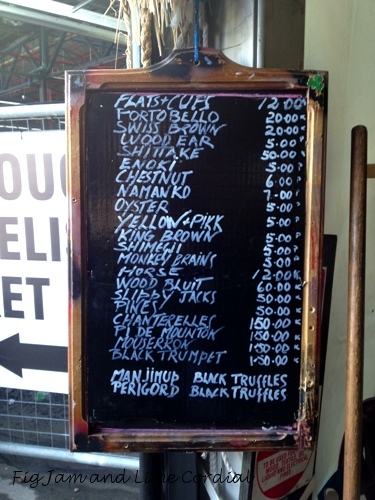 FLATS + CUPS 12.00K
PORTOBELLO 20.00K
SWISS BROWN 20.00K
WOOD EAR 5.00P
SHIITAKE 50.00K
ENOKI 5.00P
CHESTNUT 6.00P
NAMANKO 7.00P
OYSTER 5.00P
YELLOW + PIKK
KING BROWN 5.00P
SHIMEJI 5.00P
MONKEY BRAINS 5.00P
HORSE 12.00K
WOOD BLUIT 60.00K
SLIPPY JACKS 50.00K
PINES 50.00K
CHANTERELLES 150.00K
PIDE MOUNTON 150.00K
MOUSERRON 150.00K
BLACK TRUMPET 150.00K
MANJIMUP BLACK TRUFFLES
PERIGORD BLACK TRUFFLES
OUG
ELI
KET
Fig Jam and Lime Cordial